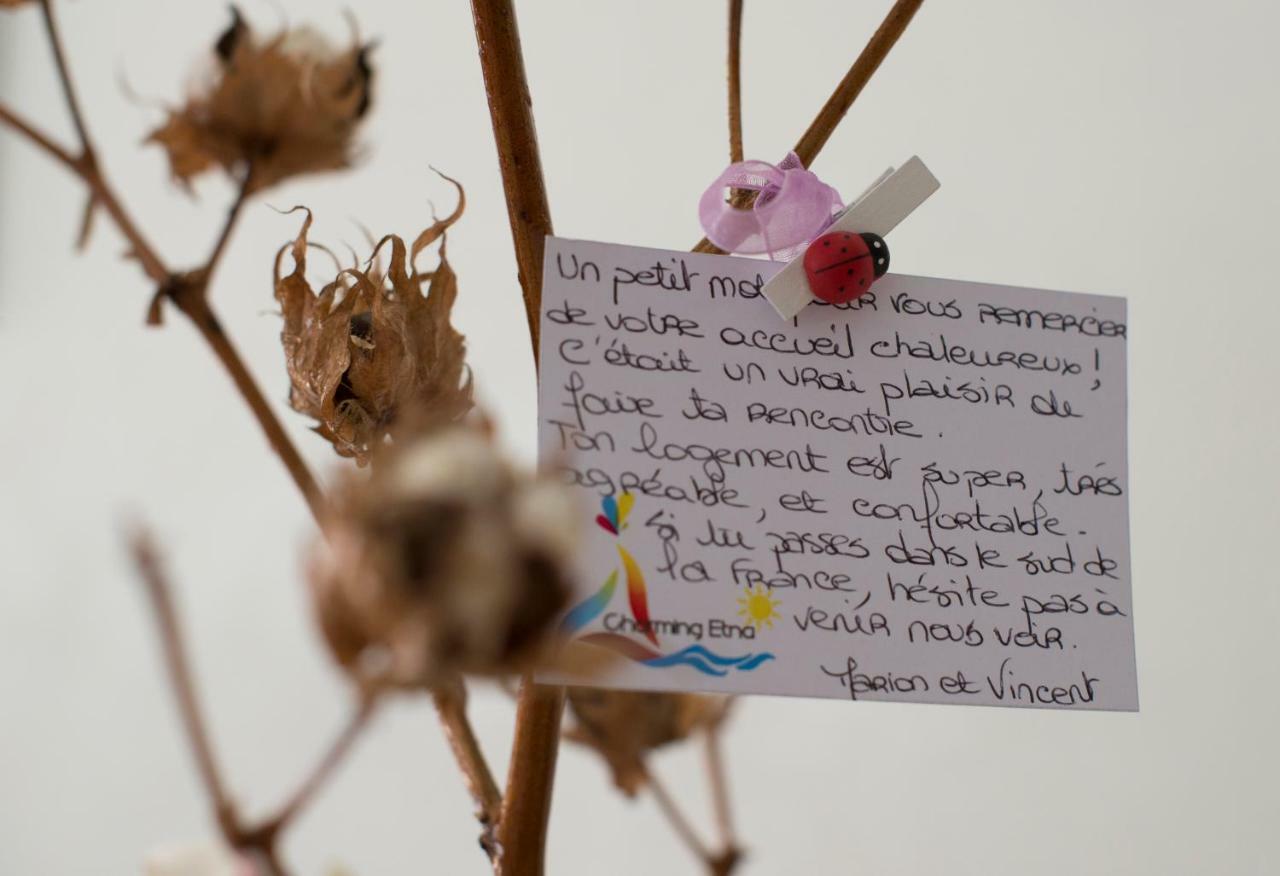 Un petit mot pour vous remercier
de votre accueil chaleureux!
C'était un vrai plaisir de
faire ta rencontre.
Ton logement est super, très
agréable, et confortable.
si tu passes dans le sud de
la France, hésite pas à
venir nous voir.
Charming Etna
Marion et Vincent